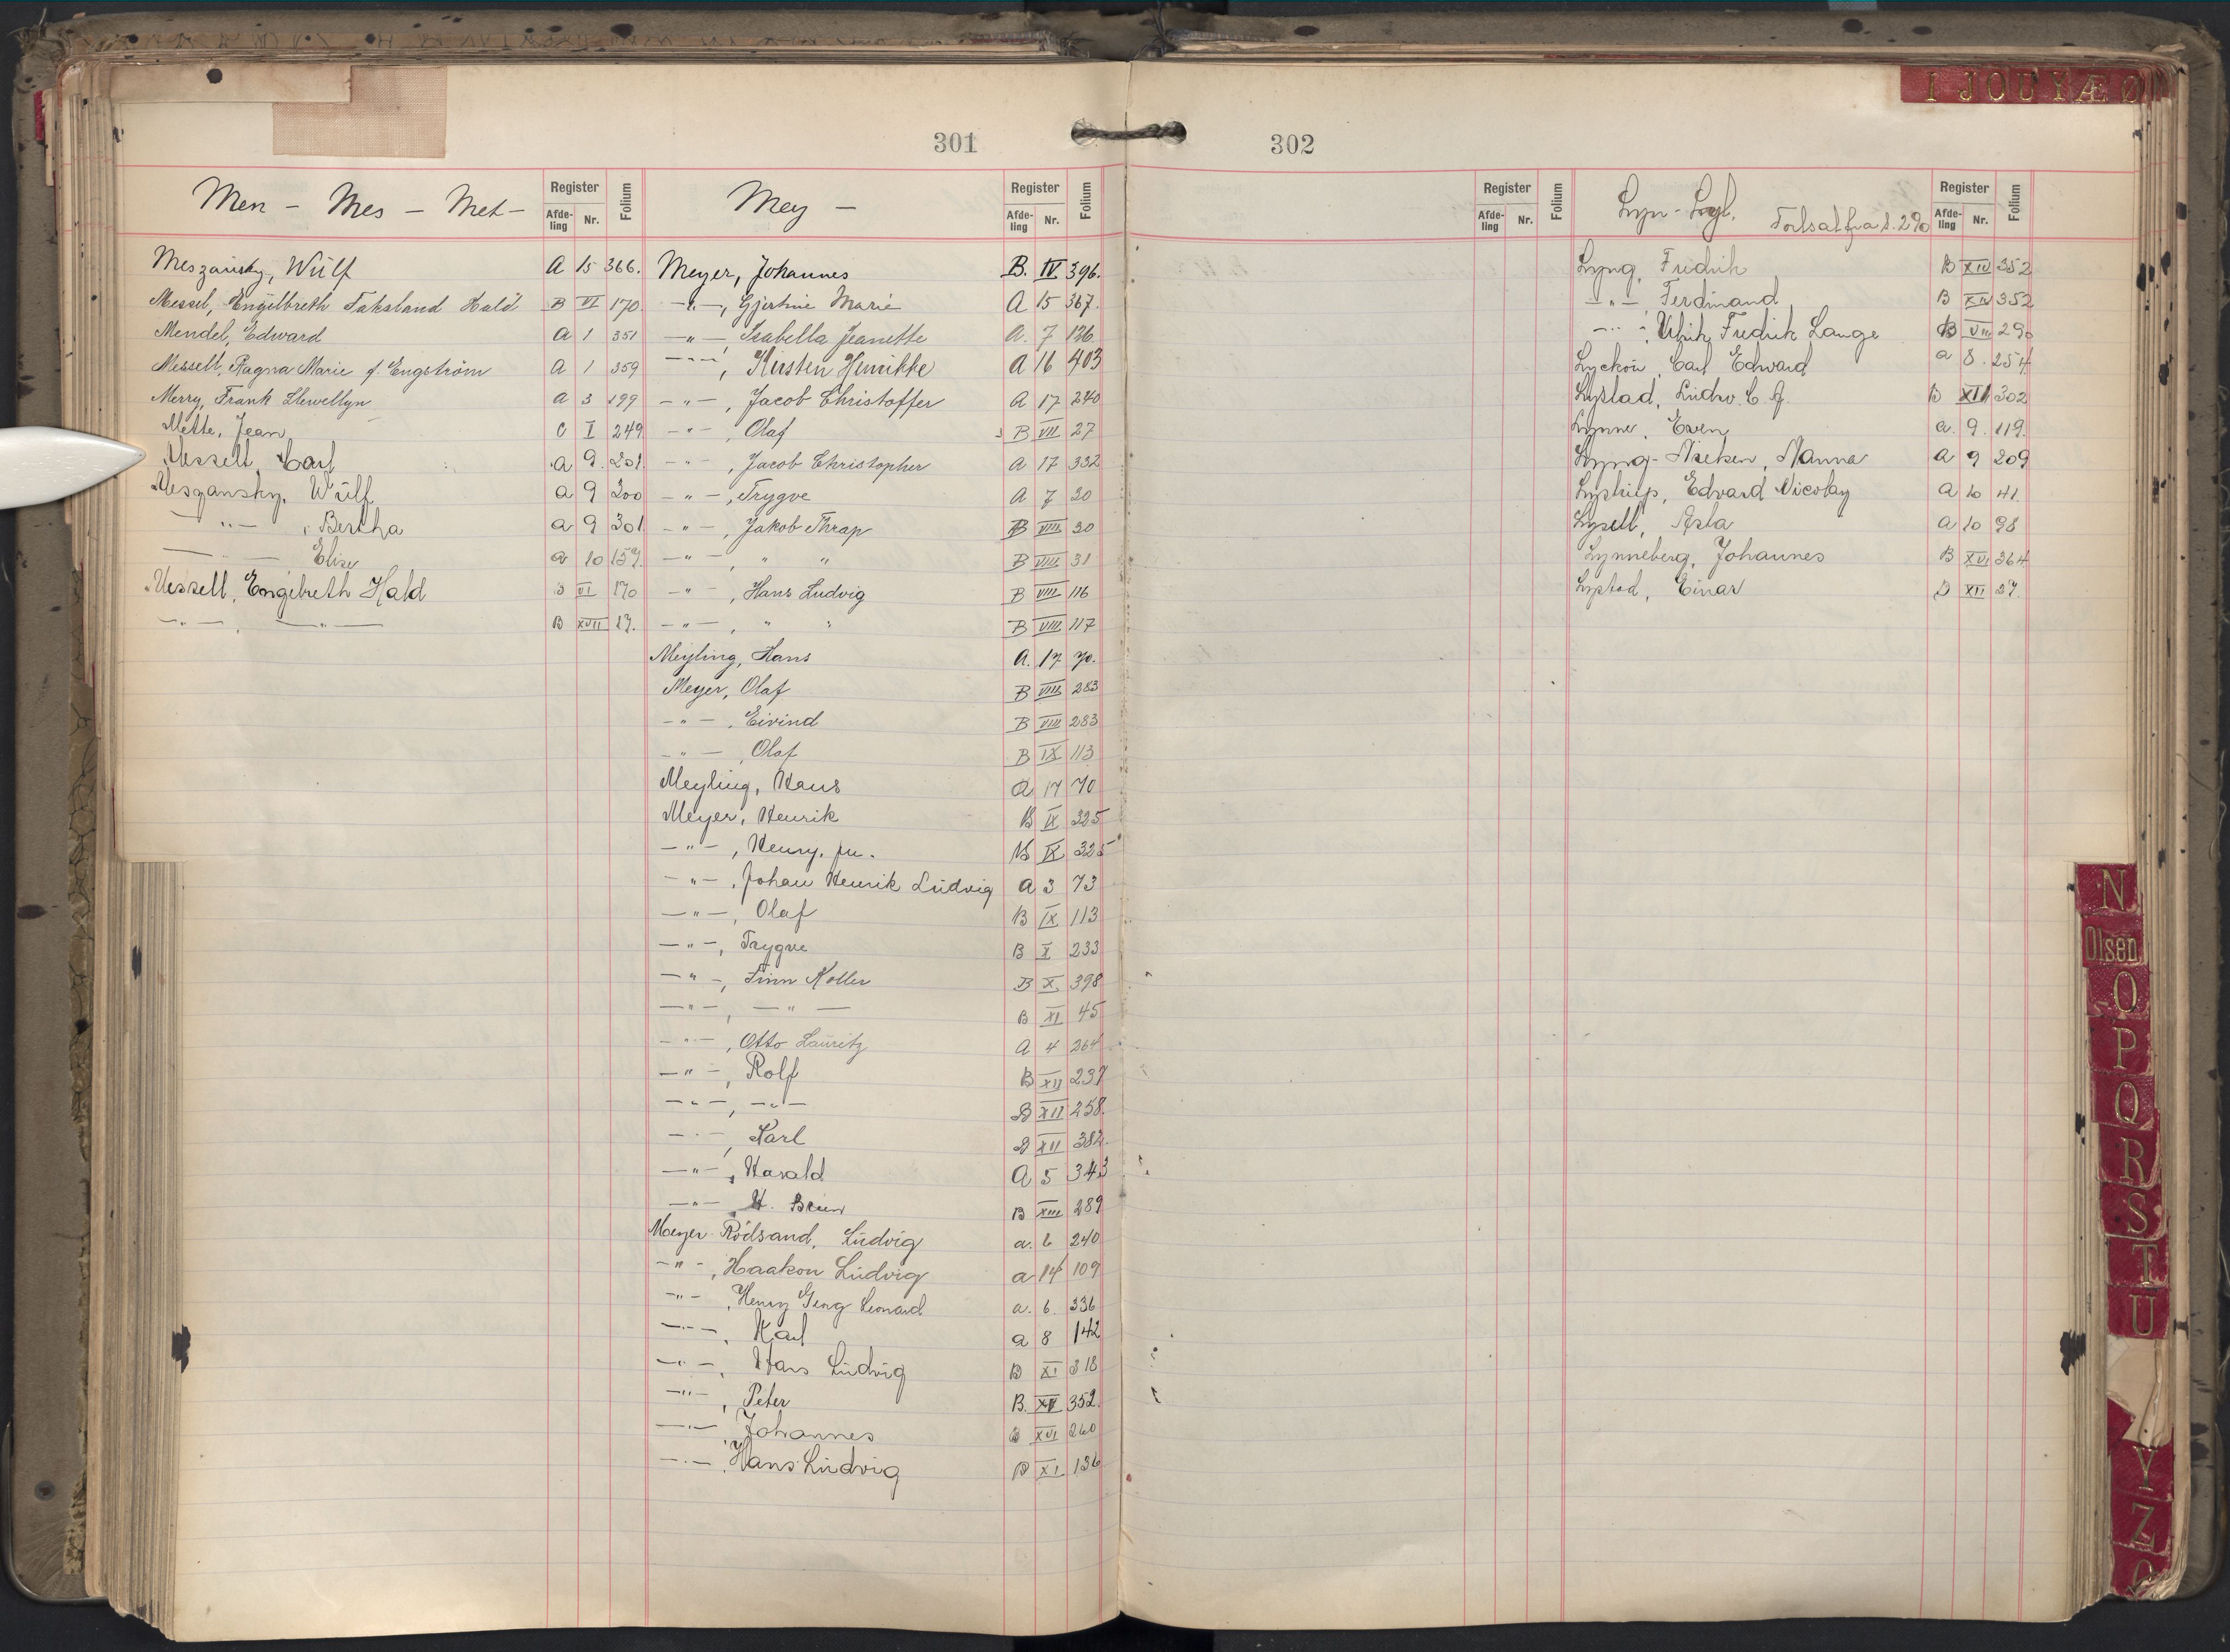 I J O U Y Æ Ø
301
Men - Mes - Met -
Register
Afde-ling Nr. Folium
Meszansky, Wulf A 15 366.
Messel, Engelbreth Faksland Hald B VI 170
Mendel, Edward A 1 351
Messell, Ragna Marie f. Engström A 1 359
Merry, Frank Llewellyn A 3 199
Mette, Jean C I 249
Messell, Carl a 9. 201.
Mesgansky, Wulf a 9 300
— " — , Bertha a 9 301
— " — Elise a 10 157.
Messell, Engebreth Hald B VI 170
— " — , — " — B XVII 27.
Mey -
Register
Afde-ling Nr. Folium
Meyer, Johannes B. IV 396.
— " — , Gjertine Marie A 15 367.
— " — Isabella Jeanette A. 7 126.
— " — , Kirsten Henrikke A 16 403
— " — , Jacob Christoffer A 17 240
— " — , Olaf B VII 27
— " — , Jacob Christopher A 17 332
— " — , Trygve A 7 20
— " — , Jakob Thrap B VIII 30
— " — , " " B VIII 31
— " — , Hans Ludvig B VIII 116
— " — , " " B VIII 117
Meyling, Hans A. 17 70.
Meyer, Olaf B VIII 283
— " — , Eivind B VIII 283
— " — , Olaf B IX 113
Meyling, Hans A 17 70
Meyer, Henrik B IX 325
— " — , Henry, jn. B IX 325
— " — , Johan Henrik Ludvig A 3 73
— " — , Olaf B IX 113
— " — , Trygve B X 233
— " — , Finn Koller B X. 398
— " — , — " — B XI 45
— " — , Otto Lauritz A 4 264
— " — , Rolf B XII 237
— " — , — " — B XII 258.
— " — , Karl B XII 382.
— " — , Harald A 5 343
— " — , H. Bruun B XIII 289
Meyer Rödsand, Ludvig a. 6 240
— " — , Haakon Ludvig a 14 109
— " — , Henry Georg Leonard a. 6. 336
— " — , Karl a 8 142
— " — , Hans Ludvig B XI 318
— " — , Peter B. XV 352.
— " — , Johannes B XVI 260
— " — , Hans Ludvig B XI 136
302
Register
Afde-ling Nr. Folium
Lyn - Lyl. Fortsat fra s. 290
Register
Afde-ling Nr. Folium
Lyng, Fredrik B XIV 352
— " — , Ferdinand B XIV 352
— " — , Ulrik Fredrik Lange B VIII 290
Lyckow, Carl Edward a 8. 254
Lystad, Ludv. C. J. B XIII 302
Lynner, Even a. 9. 119.
Lyng-Nielsen, Nanna a 9 209
Lystrup, Edvard Nicolay a 10 41.
Lysell, Asta a 10 98
Lynneberg, Johannes B XVI 364
Lystad, Einar B XII 37.
N
Olsen
O
P
Q
R
S
T
U
Y
Z